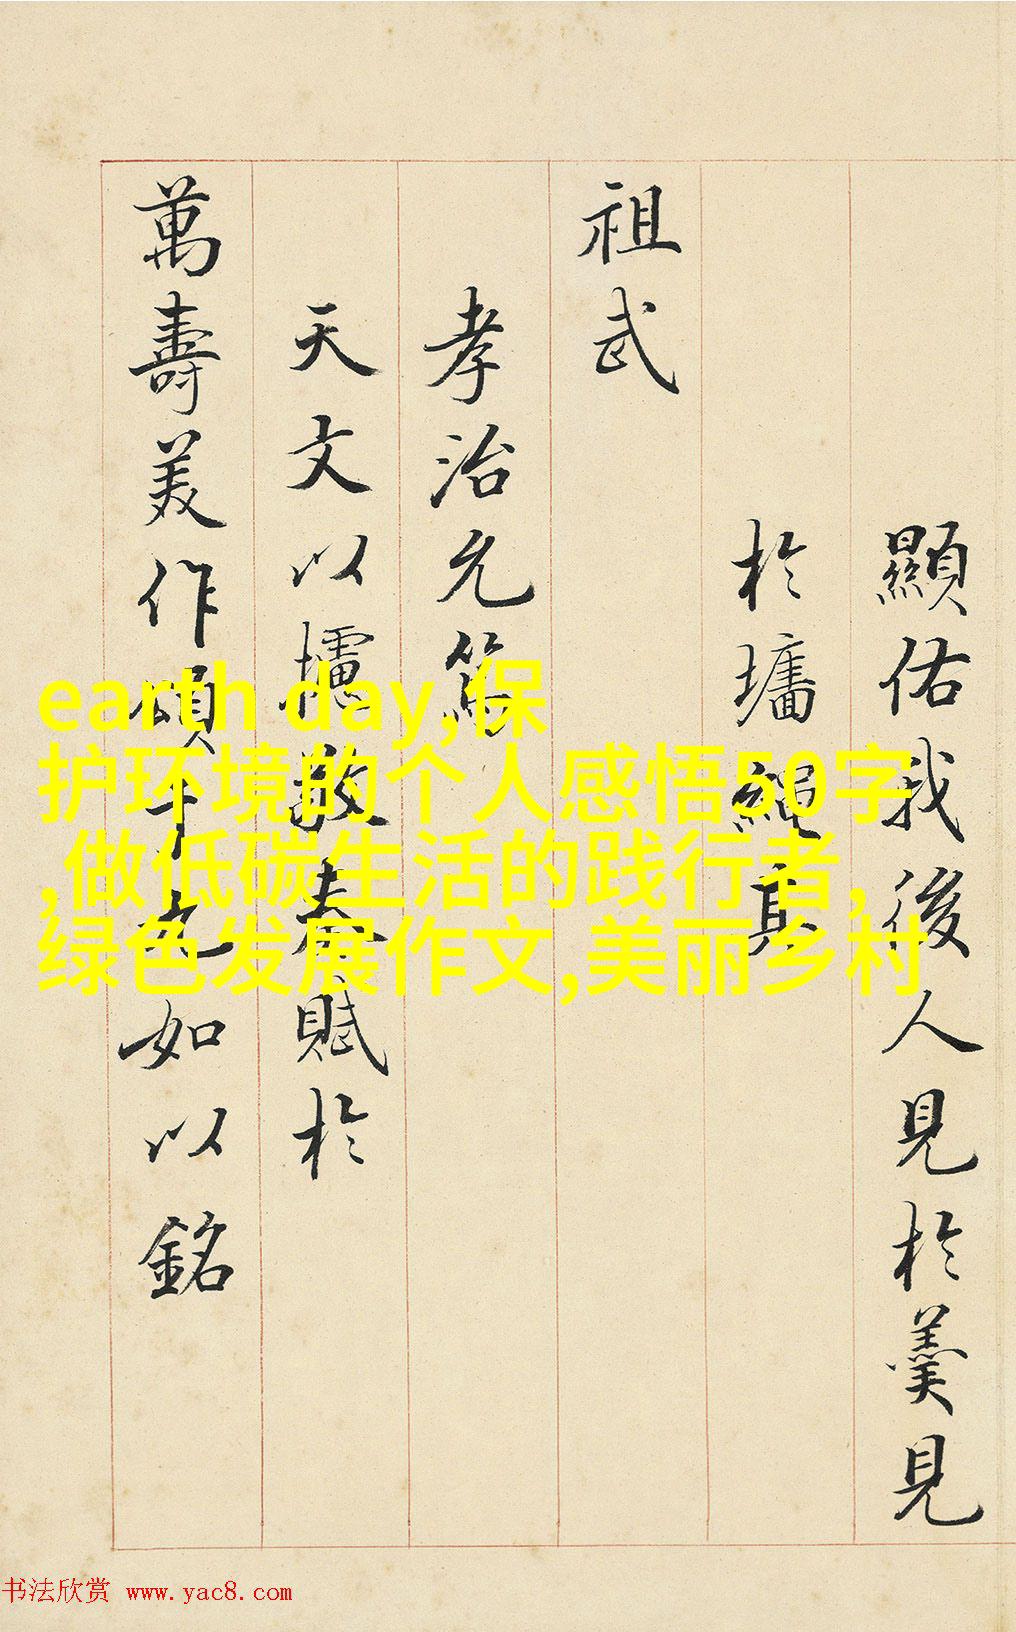 顯佑我後人見於羹見
於墻繩
祖武
孝治允篤
天文以攄敷奏賦於
萬壽美作頌千九如以銘
earth day,保
护环境的个人感悟50字
,做低碳生活的践行者,
绿色发展作文,美丽乡村
书法欣赏 www.yac8.com